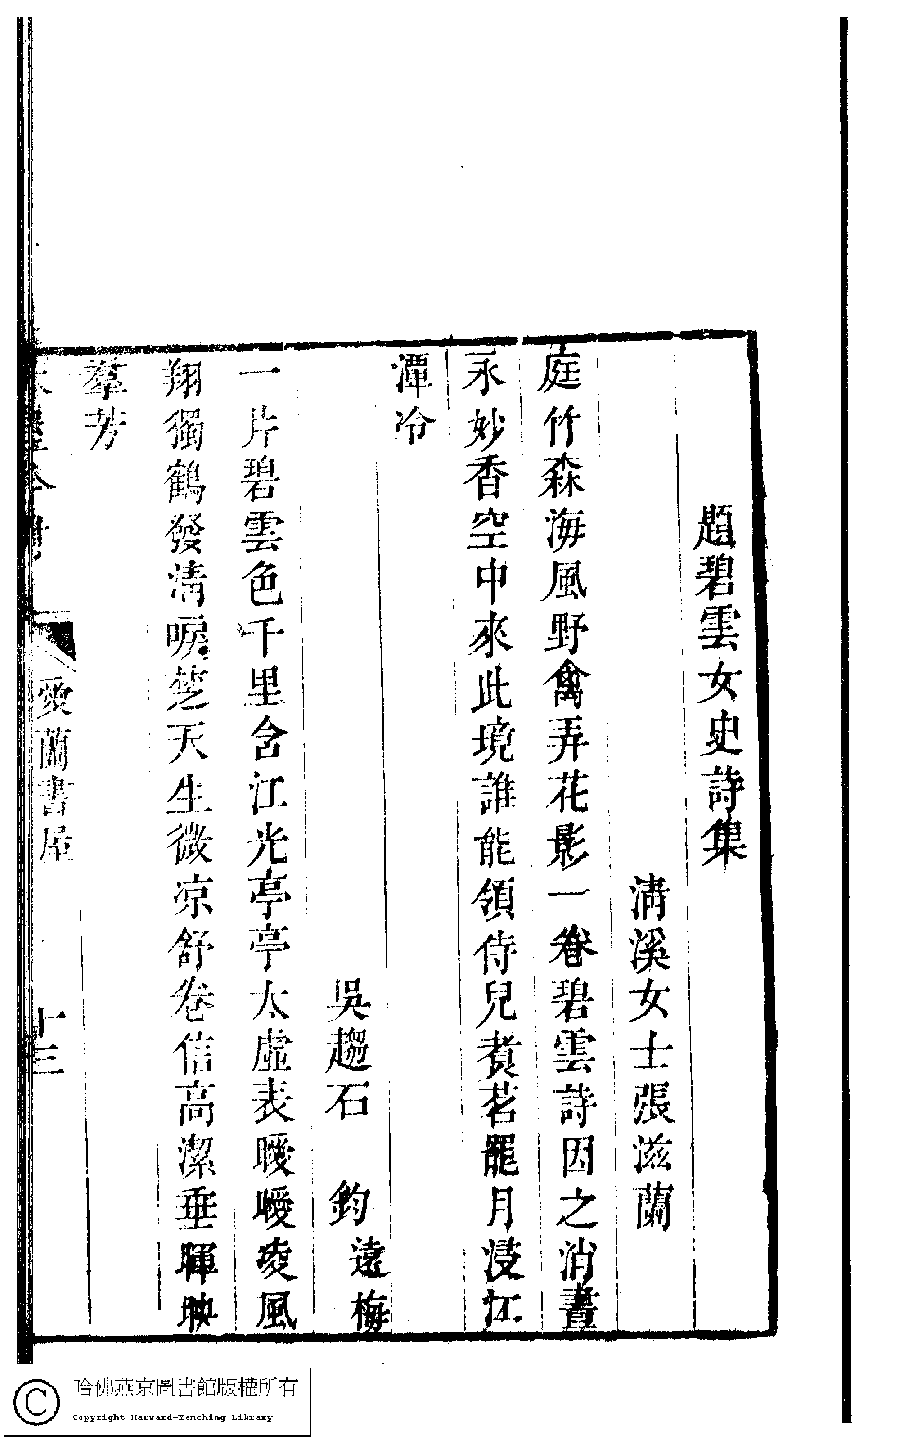 題碧雲女史詩集
清溪女士張滋蘭
庭竹森海風野禽弄花影一卷碧雲詩因之消晝
永妙香空中來此境誰能領侍兒煑茗罷月浸江
潭冷
吳趨石 鈞 遠梅
一片碧雲色千里含江光亭亭太虛表曖曖凌風
翔獨鶴發清唳笠天生微凉舒卷信高潔垂暉映
羣芳
愛蘭書屋
十三
哈佛燕京圖書館版權所有
Copyright Harvard-Yenching Library